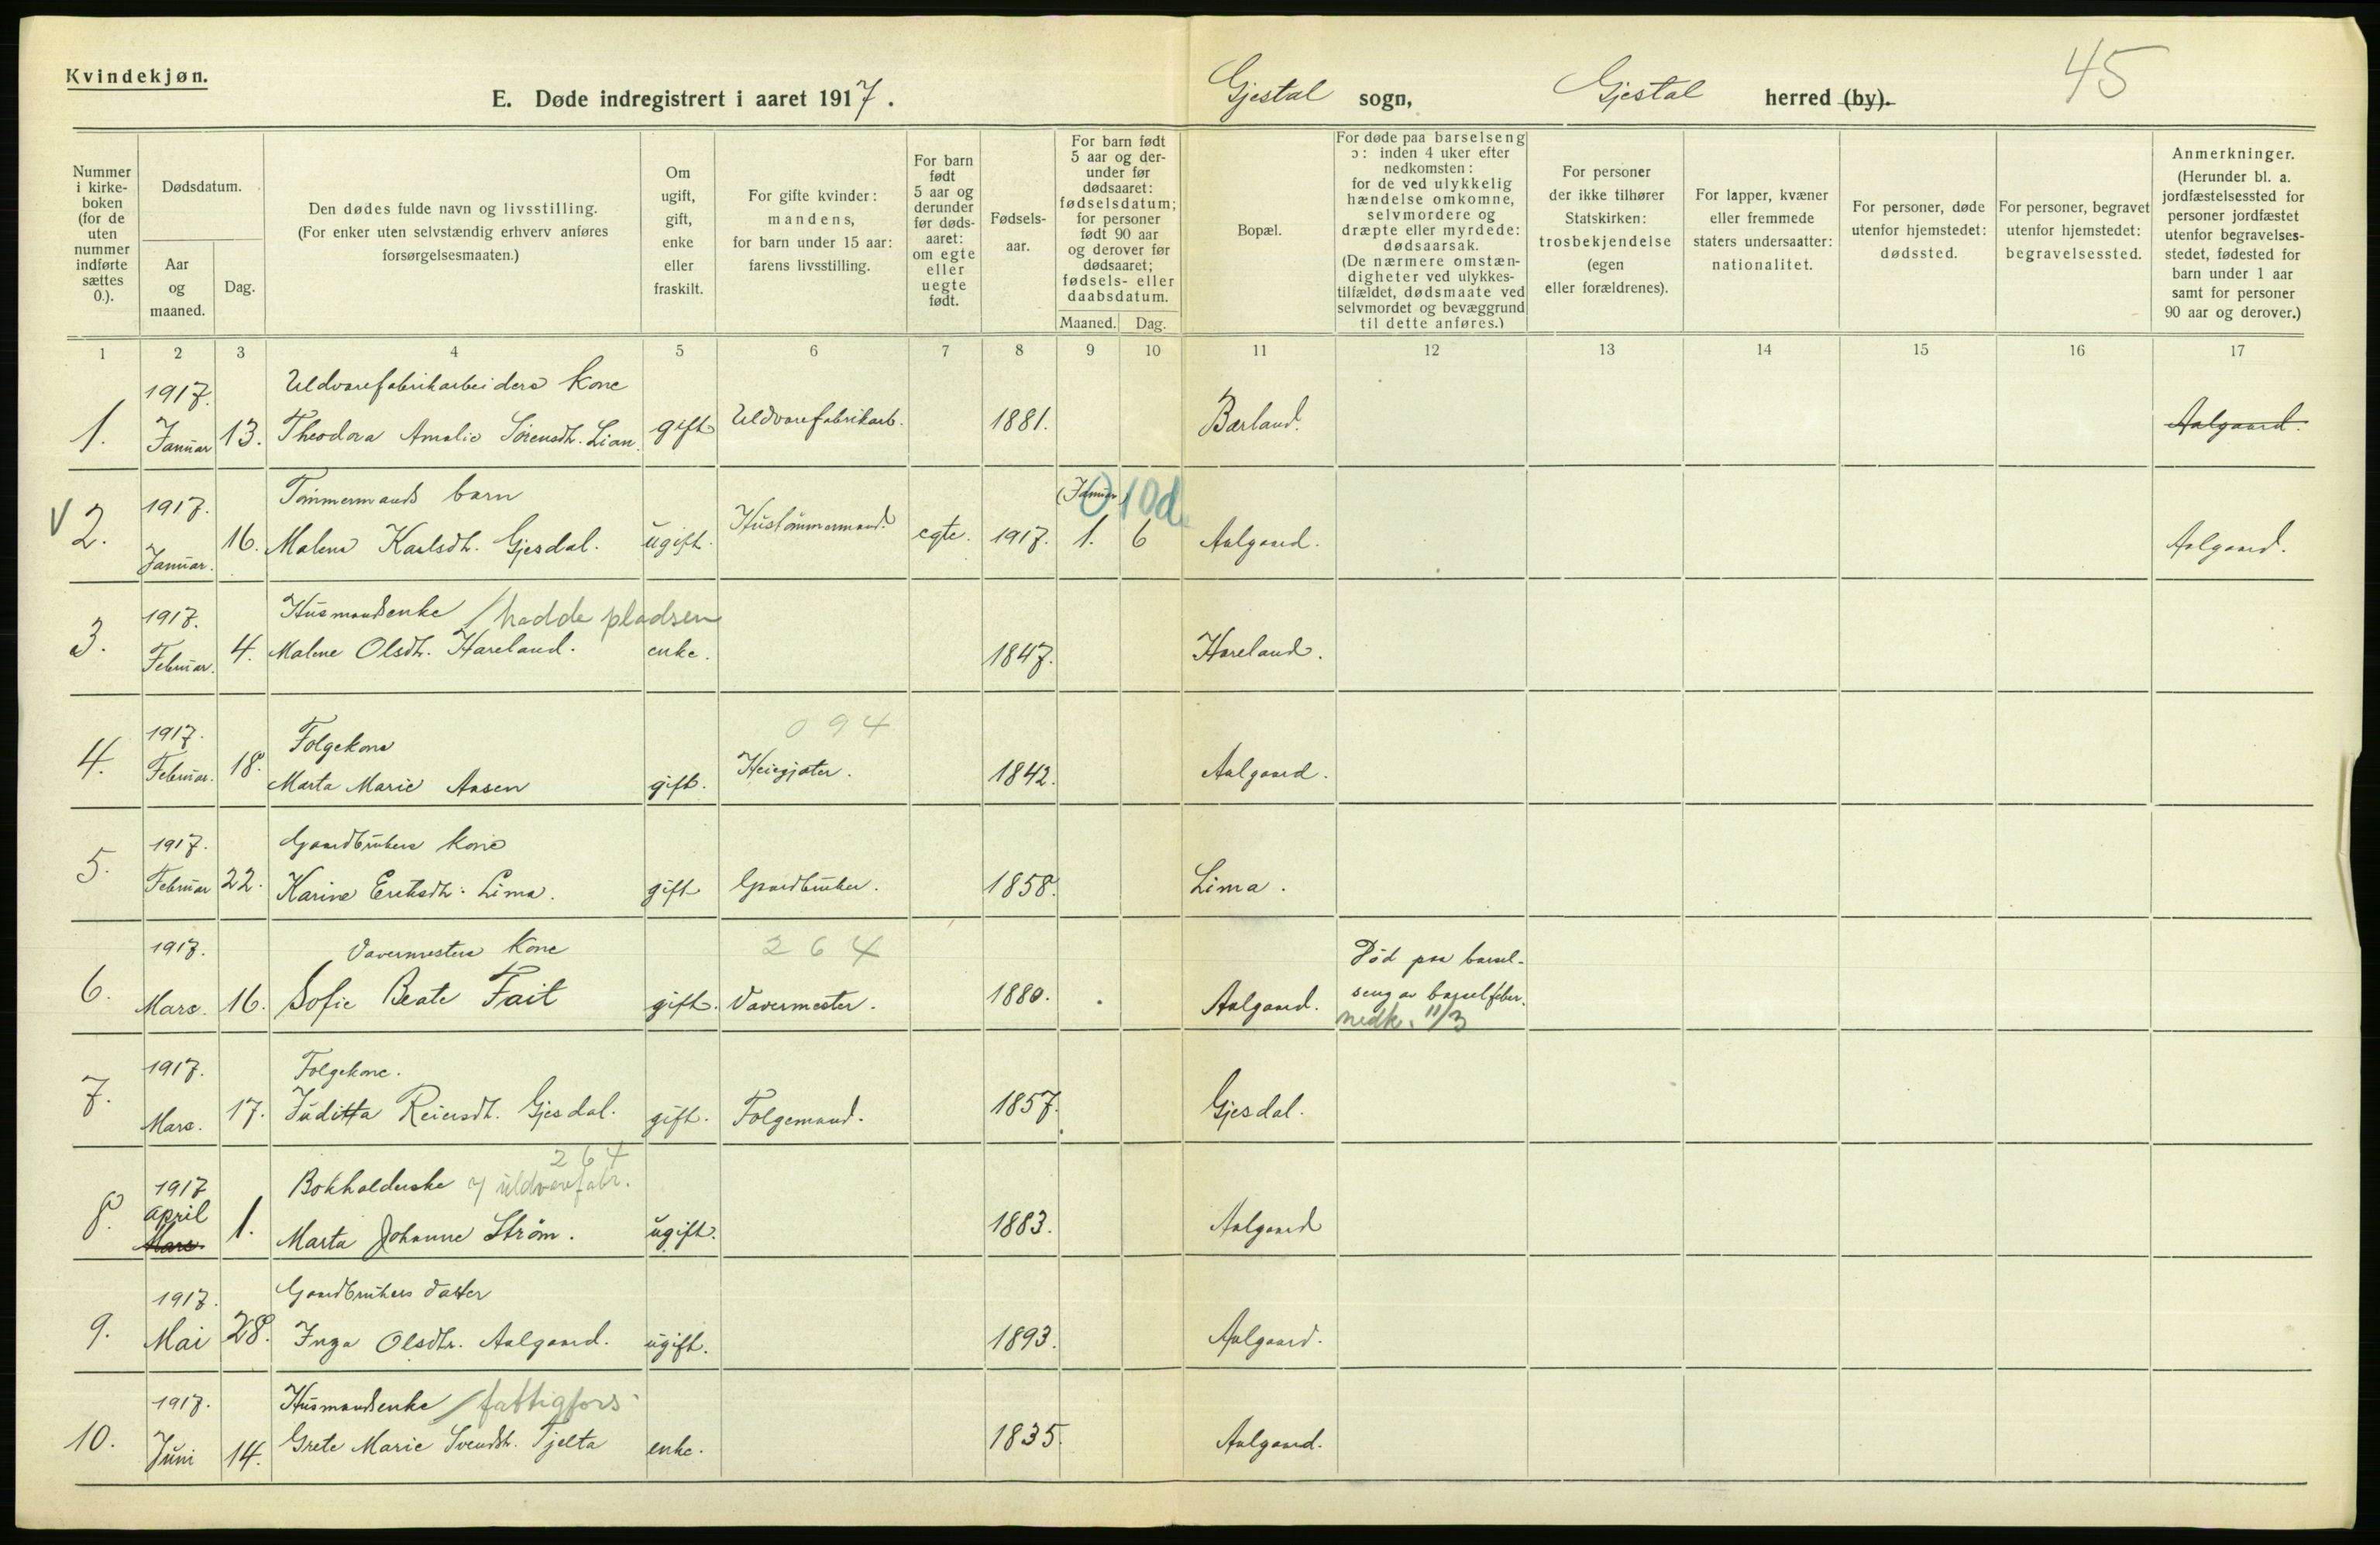 Kvindekjøn.
45
E. Døde indregistrert i aaret 1917.
Gjestal sogn, Gjestal herred (by).
Nummer i kirke-boken (for de uten nummer indførte sættes 0.).
Dødsdatum.
Aar og maaned.
Dag.
Den dødes fulde navn og livsstilling.
(For enker uten selvstændig erhverv anføres forsørgelsesmaaten.)
Om ugift, gift, enke eller fraskilt.
For gifte kvinder: mandens, for barn under 15 aar: farens livsstilling.
For barn født 5 aar og derunder før døds-aaret: om egte eller uegte født.
Fødsels-aar.
For barn født 5 aar og der-under før dødsaaret: fødselsdatum; for personer født 90 aar og derover før dødsaaret; fødsels- eller daabsdatum.
Maaned.
Dag.
Bopæl.
For døde paa barselseng ɔ: inden 4 uker efter nedkomsten: for de ved ulykkelig hændelse omkomne, selvmordere og dræpte eller myrdede: dødsaarsak. (De nærmere omstæn-digheter ved ulykkes-tilfældet, dødsmaate ved selvmordet og bevæggrund til dette anføres.)
For personer der ikke tilhører Statskirken: trosbekjendelse (egen eller forældrenes).
For lapper, kvæner eller fremmede staters undersaatter: nationalitet.
For personer, døde utenfor hjemstedet: dødssted.
For personer, begravet utenfor hjemstedet: begravelsessted.
Anmerkninger. (Herunder bl. a. jordfæstelsessted for personer jordfæstet utenfor begravelses-stedet, fødested for barn under 1 aar samt for personer 90 aar og derover.)
1 2 3 4 5 6 7 8 9 10 11 12 13 14 15 16 17
1917. Uldvarefabrikarbeiders kone
1. Januar 13. Theodora Amalie Sørensdt. Lian. gift Uldvarefabrikarb. 1881. Bærland. Aalgaard.
1917. Tømmermands barn (Januar) 10d
V 2. Januar. 16. Malena Karlsdt. Gjesdal. ugift. Hustømmermand. egte. 1917. 1. 6 Aalgaard. Aalgaard.
1917. Husmandsenke / hadde pladsen
3. Februar. 4. Malene Olsdt. Hareland. enke. 1847. Hareland.
1917. Folgekone 094
4. Februar. 18. Marta Marie Aasen gift. Heiegjæter. 1842. Aalgaard.
1917. Gaardbrukers kone
5. Februar 22. Karine Eriksdt. Lima. gift Gaardbruker. 1858. Lima.
1917. Vævermesters kone 264 Død paa barsel-
6. Mars. 16. Sofie Beate Fait gift. Vævermester. 1880. Aalgaard. seng av barselfeber.
nedk. 11/3
1917. Folgekone.
7. Mars. 17. Juditta Reiersdt. Gjesdal. gift. Folgemand. 1857. Gjesdal.
264
1917 Bokholderske v/ uldvarefabr.
8. April Mars. 1. Marta Johanne Strøm. ugift. 1883. Aalgaard
1917. Gaardbrukers datter
9. Mai 28. Inga Olsdtr. Aalgaard. ugift. 1893. Aalgaard.
1917. Husmandsenke / fattigfors.
10. Juni 14. Grete Marie Svendsdt. Tjelta enke. 1835. Aalgaard.